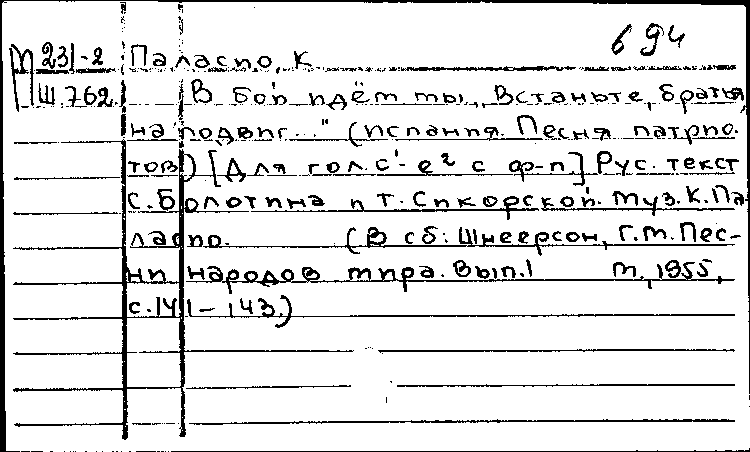 694
М 231-2 Паласио, К.
Ш.762. В бой идём мы „Встаньте, братья,
на подвиг..." (Испания. Песня патрио-
тов) [Для гол. с¹-е² с ф-п.] Рус. текст
С. Болотина и Т. Сикорской. Муз. К. Па-
ласио. (В сб: Шнеерсон, Г.М. Пес-
ни народов мира. Вып. 1 М., 1955,
с. 141-143.)